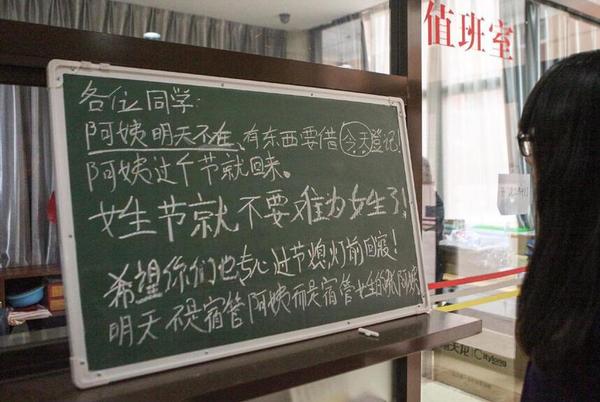 值班室
各位同学:
阿姨明天不在,有东西要借今天登记!
阿姨过个节就回来。
女生节就不要难为女生了!
希望你们也专心过节熄灯前回寝!
明天不是宿管阿姨而是宿管女生的张阿姨
天龙
Citylong